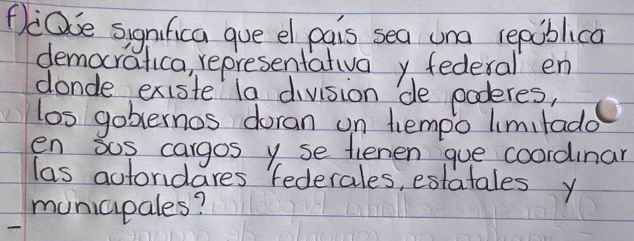 f)¿Qúe significa que el país sea una república
democrática, representativa y federal en
donde existe la division de poderes,
los gobiernos duran un tiempo limitado
en sus cargos y se tienen que coordinar
las autoridares federales, estatales y
municipales?